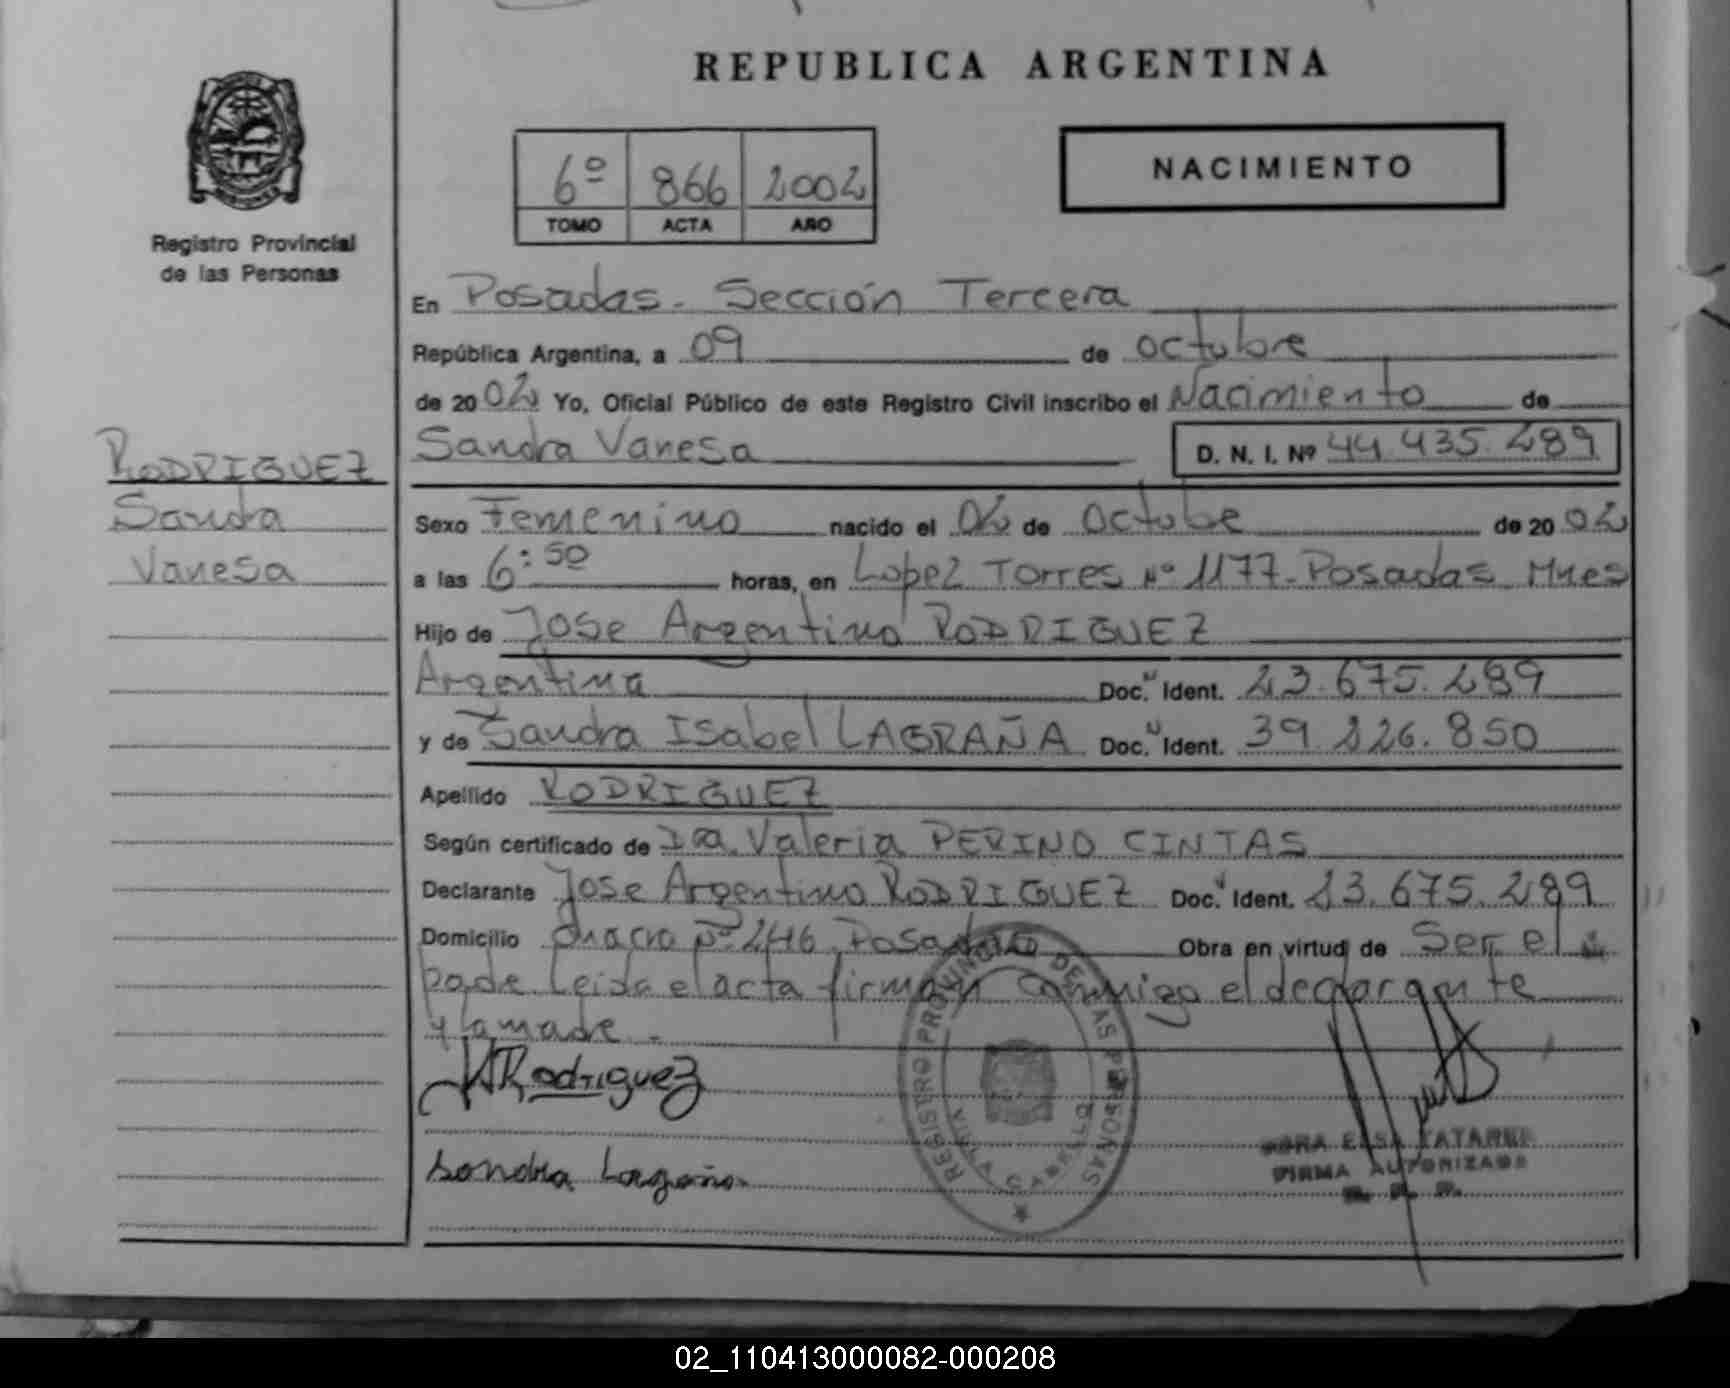 REPUBLICA ARGENTINA
6º 866 2002
TOMO ACTA AÑO
NACIMIENTO
Registro Provincial
de las Personas
En Posadas - Sección Tercera
República Argentina, a 09 de octubre
de 2002 Yo, Oficial Público de este Registro Civil inscribo el Nacimiento de
Sandra Vanesa D. N. I. Nº 44.435.289
RODRIGUEZ
Sandra
Vanesa
Sexo Femenino nacido el 02 de Octube de 2002
a las 6:50 horas, en Lopez Torres Nº 1177 - Posadas Mnes
Hijo de Jose Argentino RODRIGUEZ
Argentina Doc. Ident. 23.675.289
y de Sandra Isabel LAGRAÑA Doc. Ident. 39.226.850
Apellido RODRIGUEZ
Según certificado de Dra. Valeria PERINO CINTAS
Declarante Jose Argentino RODRIGUEZ Doc. Ident. 23.675.289
Domicilio Chacra Nº 246 Posadas Obra en virtud de Ser el
padre Leida el acta firman conmigo el declarante
y la madre.-
JARodriguez
Sandra Lagraña
REGISTRO PROVINCIAL DE LAS PERSONAS
VILLA CABELLO
ELSA
FIRMA AUTORIZADA
R. P. P.
02_110413000082-000208